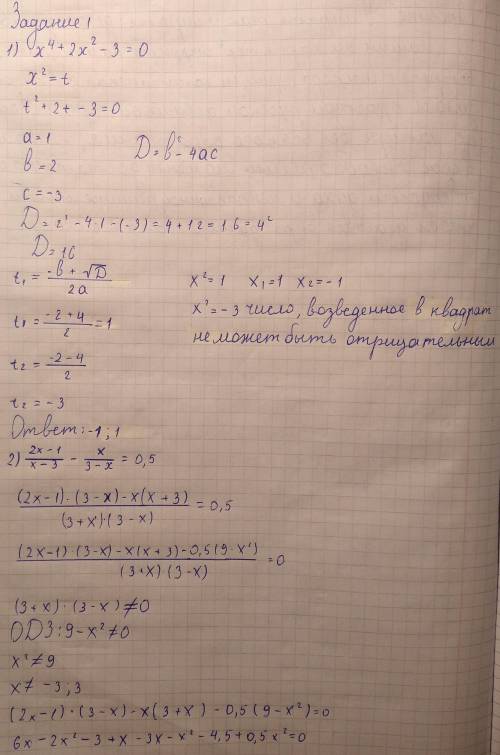 Задание 1
1) x⁴ + 2x² - 3 = 0
x² = t
t² + 2t - 3 = 0
a = 1
b = 2
D = b² - 4ac
c = -3
D = 2² - 4·1 - (-3) = 4 + 12 = 16 = 4²
D = 16
t₁ = (-b + √D)/2a
x² = 1 x₁ = 1 x₂ = -1
t₁ = (-2 + 4)/2 = 1
x² = -3 число, возведенное в квадрат
не может быть отрицательным
t₂ = (-2 - 4)/2
t₂ = -3
Ответ: -1; 1
2) (2x - 1)/(x - 3) - x/(3 - x) = 0,5
((2x - 1)·(3 - x) - x(x + 3))/((3 + x)·(3 - x)) = 0,5
((2x - 1)·(3 - x) - x(x + 3) - 0,5(9 - x²))/((3 + x)(3 - x)) = 0
(3 + x)·(3 - x) ≠ 0
ОДЗ: 9 - x² ≠ 0
x² ≠ 9
x ≠ -3; 3
(2x - 1)·(3 - x) - x(3 + x) - 0,5(9 - x²) = 0
6x - 2x² - 3 + x - 3x - x² - 4,5 + 0,5x² = 0